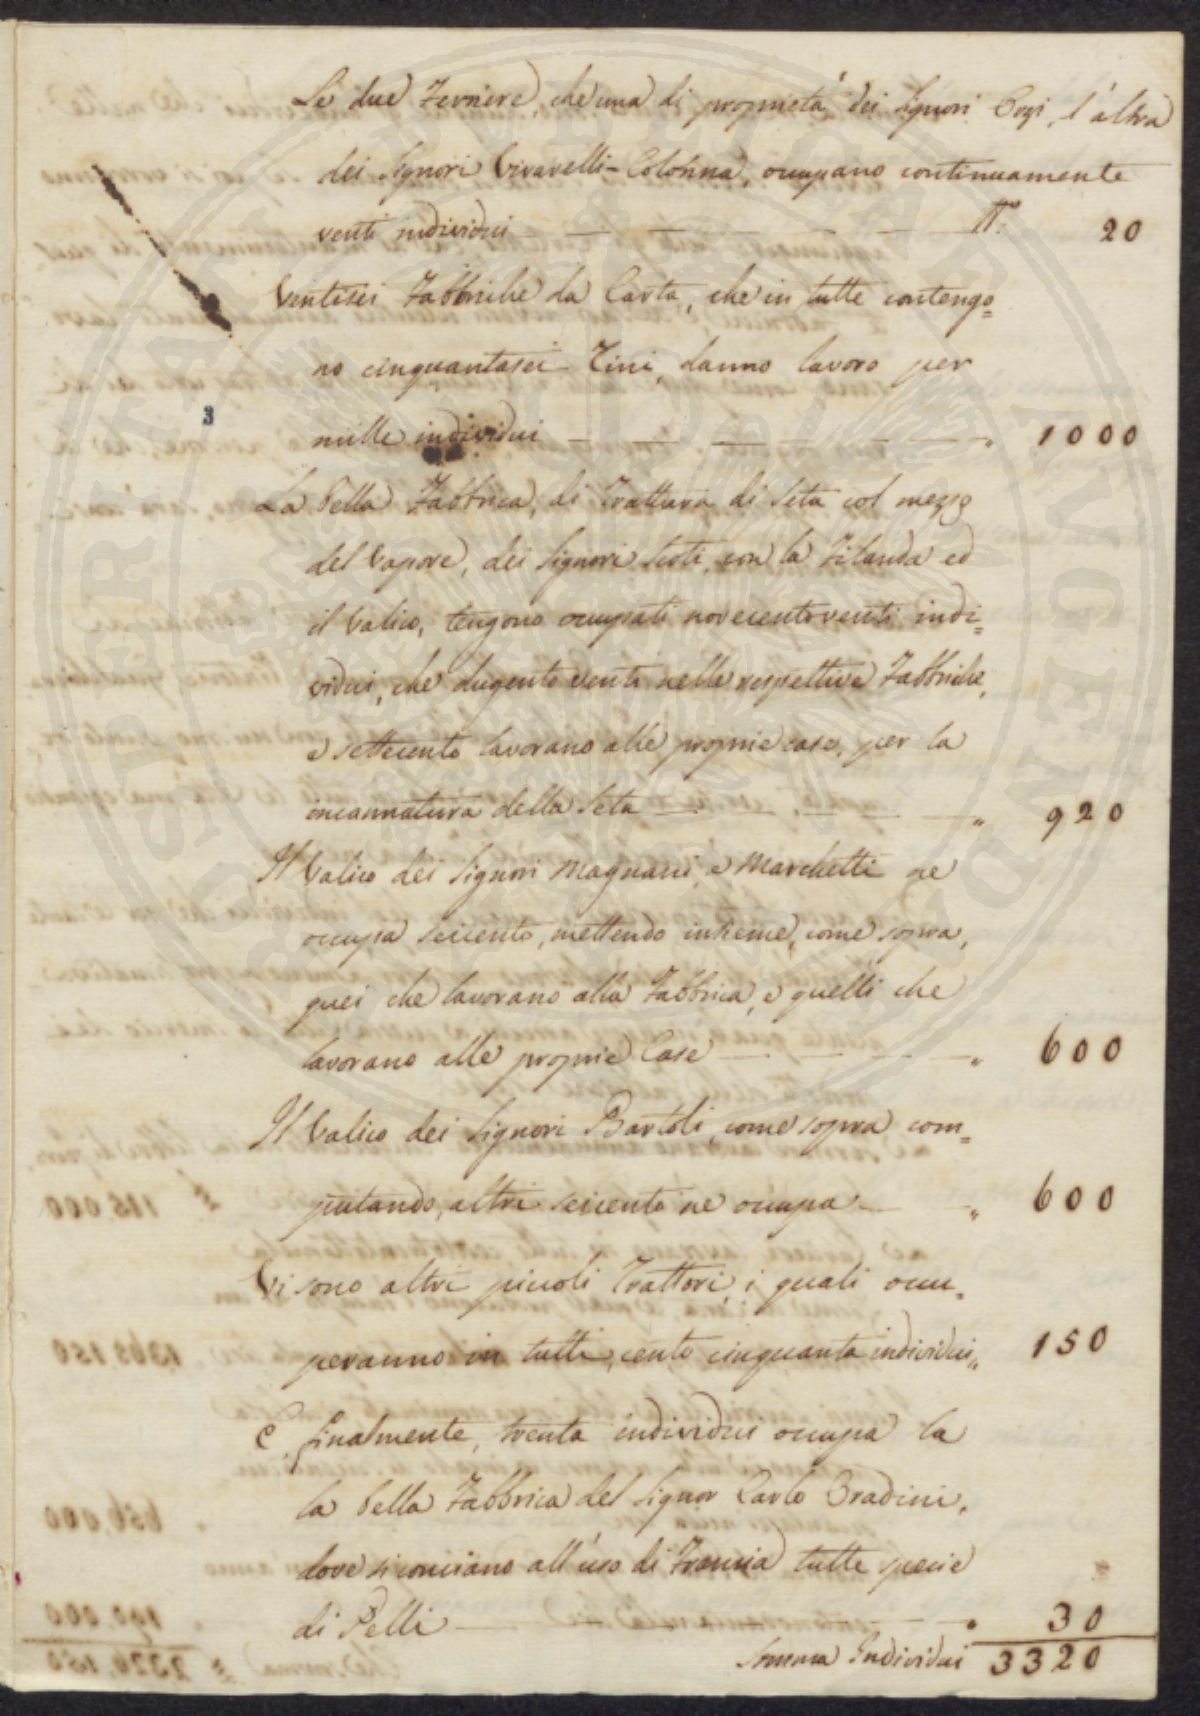 Le due Ferriere, che una di proprietà dei Signori Cozi, l'altra
dei Signori Vivarelli-Colonna, occupano continuamente
venti individui — — — — N.° 20
Ventisei Fabbriche da Carta, che in tutte contengo=
no cinquantasei Tini, danno lavoro per
mille individui — — — — — „ 1000
3
La bella Fabbrica, di Trattura di Seta col mezzo
del Vapore, dei Signori Scoti, con la Filanda ed
il Valico, tengono occupati novecentoventi indi=
vidui, che dugento venti nelle respettive Fabbriche,
e settecento lavorano alle proprie case, per la
incannatura della Seta — — — — „ 920
Il Valico dei Signori Magnani, e Marchetti ne
occupa seicento, mettendo insieme, come sopra,
quei che lavorano alla Fabbrica, e quelli che
lavorano alle proprie Case — — — — „ 600
Il Valico dei Signori Bartoli, come sopra com=
putando, altri seicento ne occupa — — „ 600
Vi sono altri piccoli Trattori, i quali occu=
peranno in tutti, cento cinquanta individui „ 150
E finalmente, trenta individui occupa la
la bella Fabbrica del Signor Carlo Bradini,
dove si conciano all'uso di Francia tutte specie
di Pelli — — — — — „ 30
Somma Individui 3320